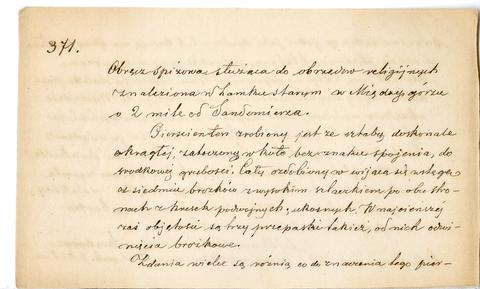 371.
Obręcz spiżowa służąca do obrzędów religijnych
znaleziona w Zamku starym w Międzygórzu
o 2 mile od Sandomierza.
Pierścień ten zrobiony jest ze sztaby doskonale
okrągłej, zatoczony w koło bez znaku spojenia, do
środkowej grubości. Cały ozdobiony w wijącą się wstęgę
o siedmiu brózkach z wysokim szlaczkiem po obu stro-
nach z kresek podwójnych, ukośnych. W najcieńszej
zaś objętości są trzy przepaski takież, od nich
brózkowe.
Zdania wielce są różnią co do znaczenia tego pier-